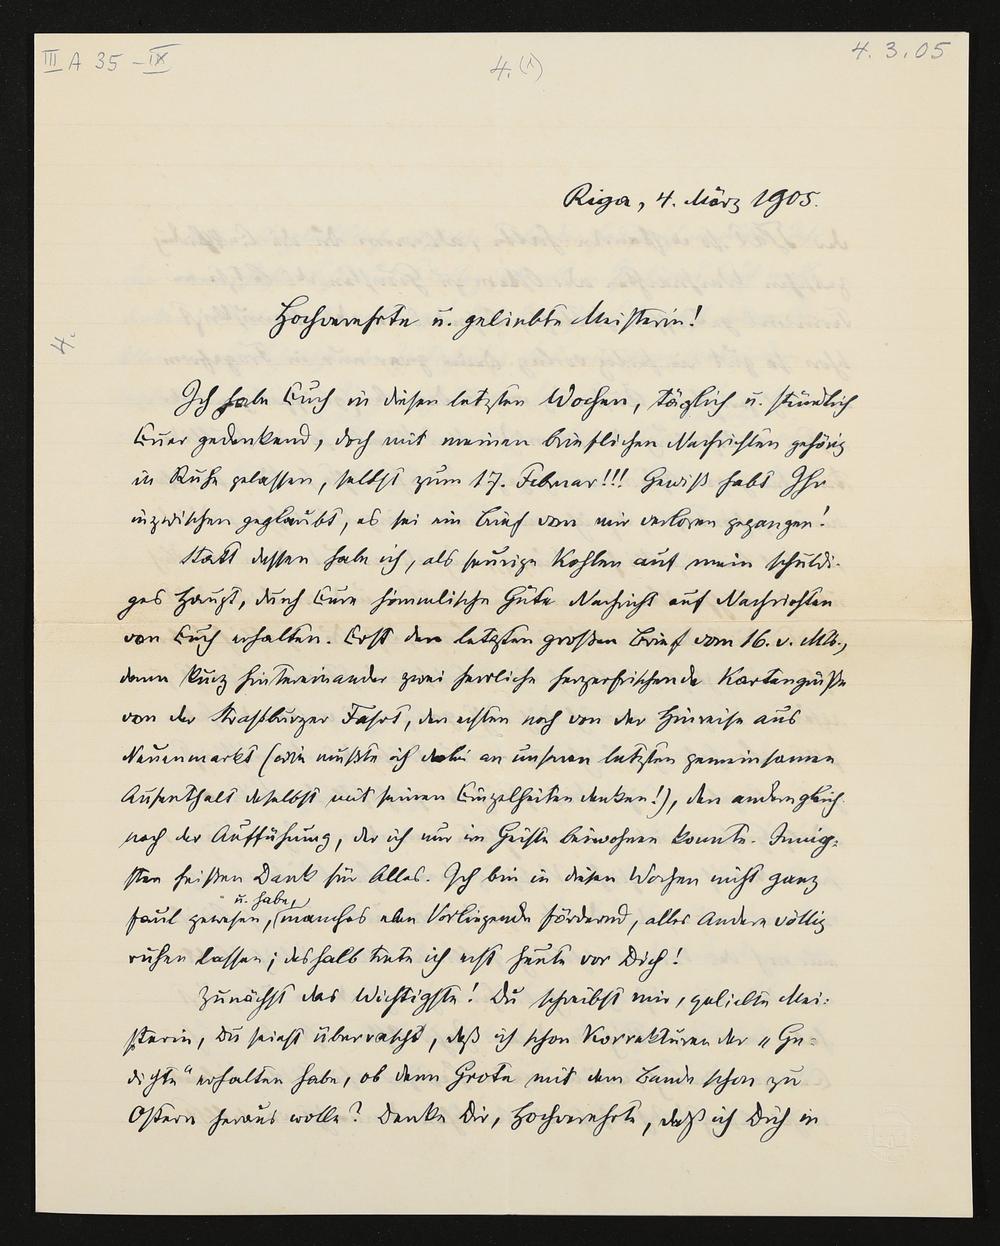 III A 35 - IX
4. (1)
4. 3. 05
4.
Riga, 4. März 1905.
Hochverehrte u. geliebte Meisterin!
Ich habe Euch in diesen letzten Wochen, täglich u. stündlich
Euer gedenkend, doch mit meinen brieflichen Nachrichten gehörig
in Ruhe gelassen, selbst zum 17. Februar!!! Gewiß habt Ihr
inzwischen geglaubt, es sei ein Brief von mir verloren gegangen!
Statt dessen habe ich, als feurige Kohlen auf mein schuldi-
ges Haupt, durch Eure himmlische Güte Nachricht auf Nachrichten
von Euch erhalten. Erst den letzten großen Brief vom 16. v. Mts.,
dann kurz hintereinander zwei herrliche herzerfrischende Kartengrüße
von der Straßburger Fahrt, den ersten noch von der Hinreise aus
Neuenmarkt (wie mußte ich dabei an unseren letzten gemeinsamen
Aufenthalt daselbst mit seinen Einzelheiten denken!), den andern gleich
nach der Aufführung, der ich nur im Geiste beiwohnen konnte. Innig-
sten heißen Dank für Alles. Ich bin in diesen Wochen nicht ganz
faul gewesen, u. habe, manches eben Vorliegende fördernd, alles Andere völlig
ruhen lassen; deshalb trete ich erst heute vor Dich!
Zunächst das Wichtigste! Du schreibst mir, geliebte Mei-
sterin, Du seiest überrascht, daß ich schon Korrekturen der „Ge-
dichte" erhalten habe, ob denn Grote mit dem Bande schon zu
Ostern heraus wolle? Denke Dir, Hochverehrte, daß ich Dich in